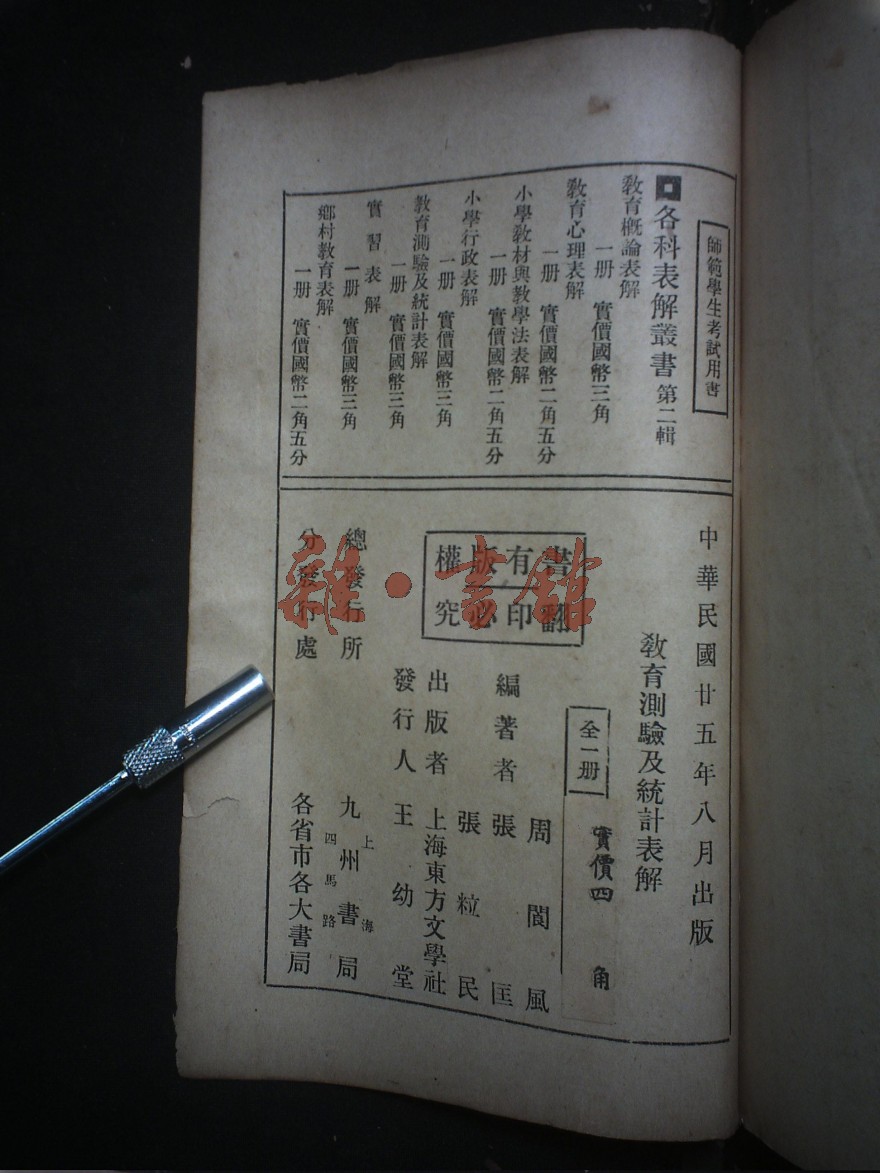 師範學生考試用書
各科表解叢書 第二輯
教育概論表解
一册 實價國幣三角
教育心理表解
一册 實價國幣二角五分
小學教材與教學法表解
一册 實價國幣二角五分
小學行政表解
一册 實價國幣三角
教育測驗及統計表解
一册 實價國幣三角
實習表解
一册 實價國幣三角
鄉村教育表解
一册 實價國幣二角五分
中華民國廿五年八月出版
教育測驗及統計表解
全一册
實價四角
編著者 周閬風
張匡
張粒民
出版者 上海東方文學社
發行人 王幼堂
書有版權
翻印必究
總發行所 上海四馬路 九州書局
分發行處 各省市各大書局
雜·書館